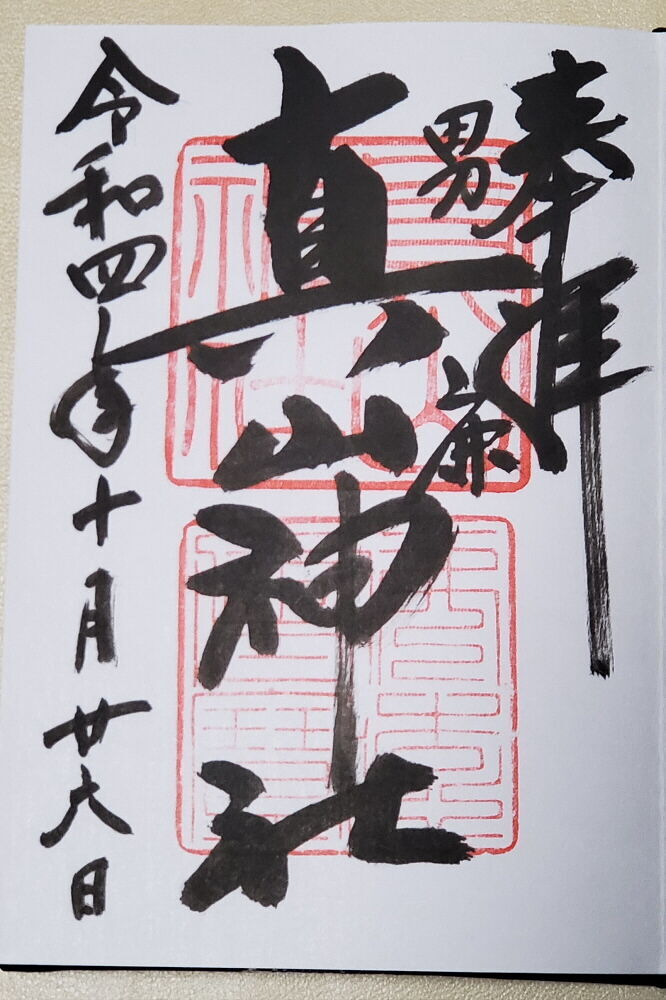 奉拝
男
真山神社
令和四年十月廿六日
真山
神社